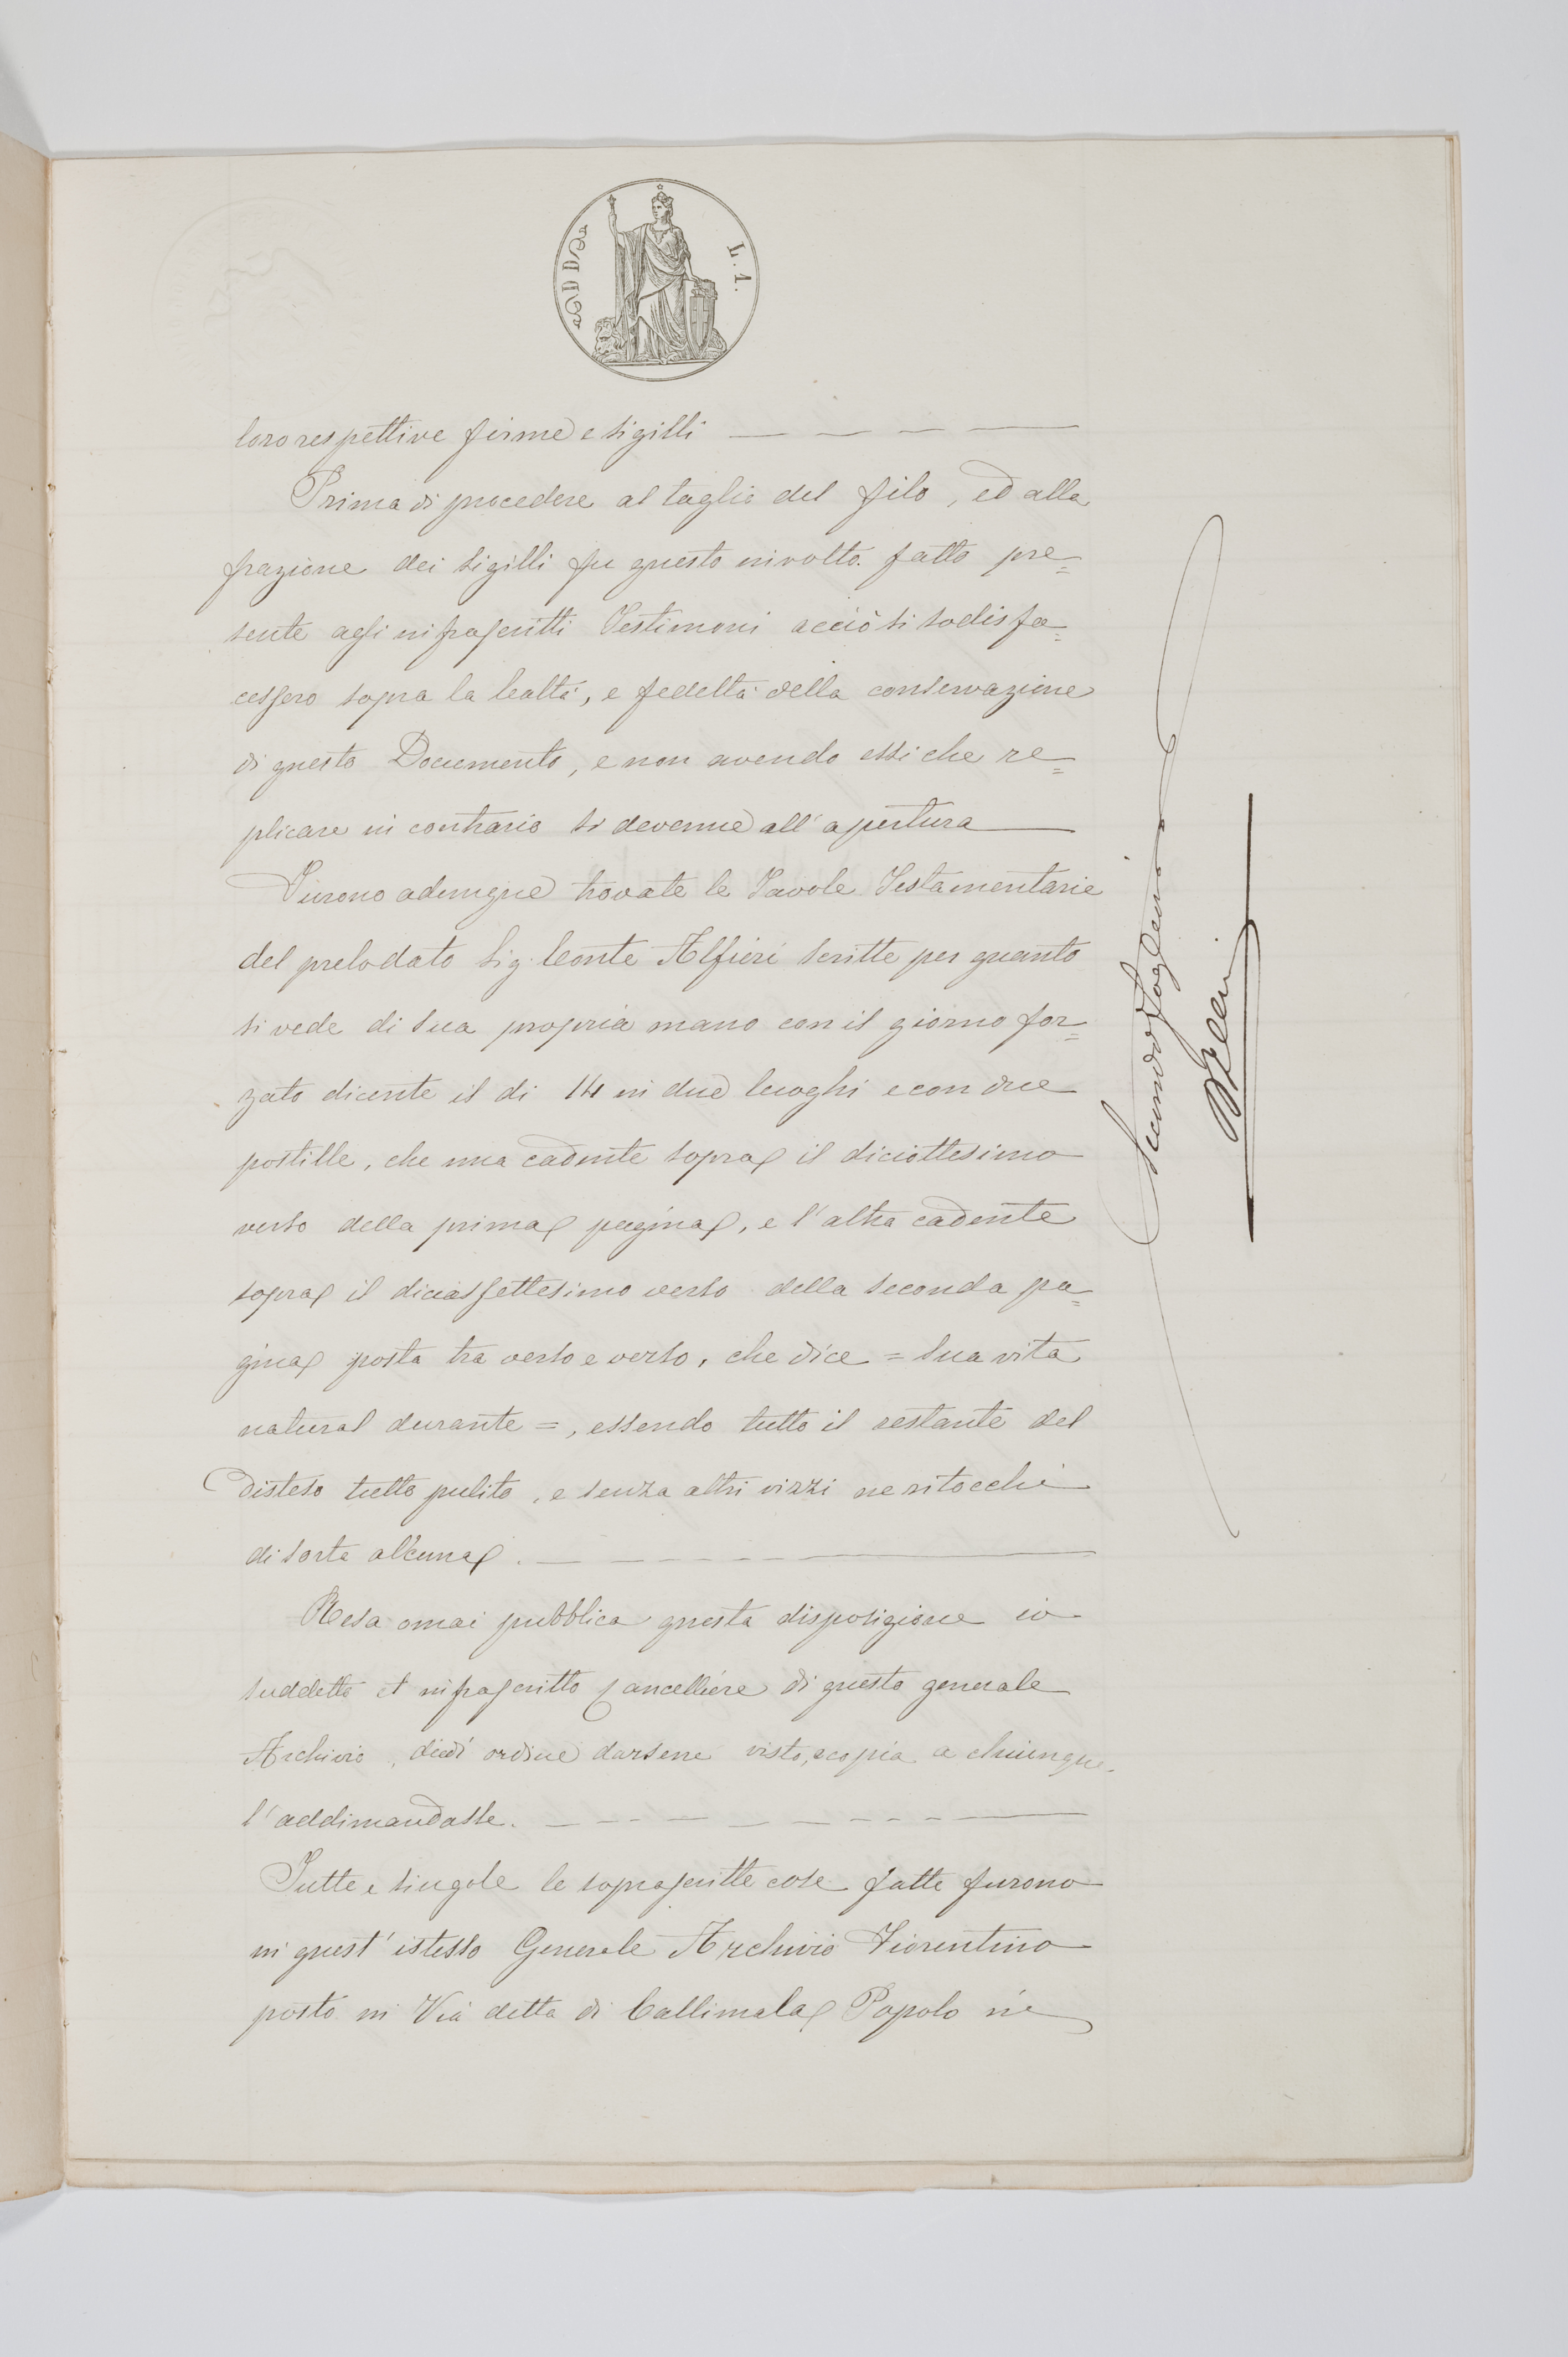 L. 1.
loro respettive firme e sigilli
Prima di procedere al taglio del filo, ed alla
frazione dei sigilli fu questo involto fatto pre=
sente agli infrascritti Testimoni acciò si sodisfa=
cessero sopra la lealtà, e fedeltà della conservazione
di questo Documento, e non avendo essi che re=
plicare in contrario si devenne all'apertura
Furono adunque trovate le Tavole Testamentarie
del prelodato Sig. Conte Alfieri scritte per quanto
si vede di sua propria mano con il giorno for=
zato dicente il di 14 in due luoghi e con due
postille, che una cadente sopra il diciottesimo
verso della prima pagina, e l'altra cadente
sopra il diciassettesimo verso della seconda pa=
gina posta tra verso e verso, che dice = sua vita
natural durante =, essendo tutto il restante del
disteso tutto pulito, e senza altri vizzi ne ritocchi
di sorta alcuna.
Resa omai pubblica questa disposizione io
suddetto et infrascritto Cancelliere di questo generale
Archivio, diedi ordine darsene visto, e copia a chiunque
l'addimandasse.
Tutte e singole le soprascritte cose fatte furono
in quest'istesso Generale Archivio Fiorentino
posto in Via detta di Callimala Popolo ne